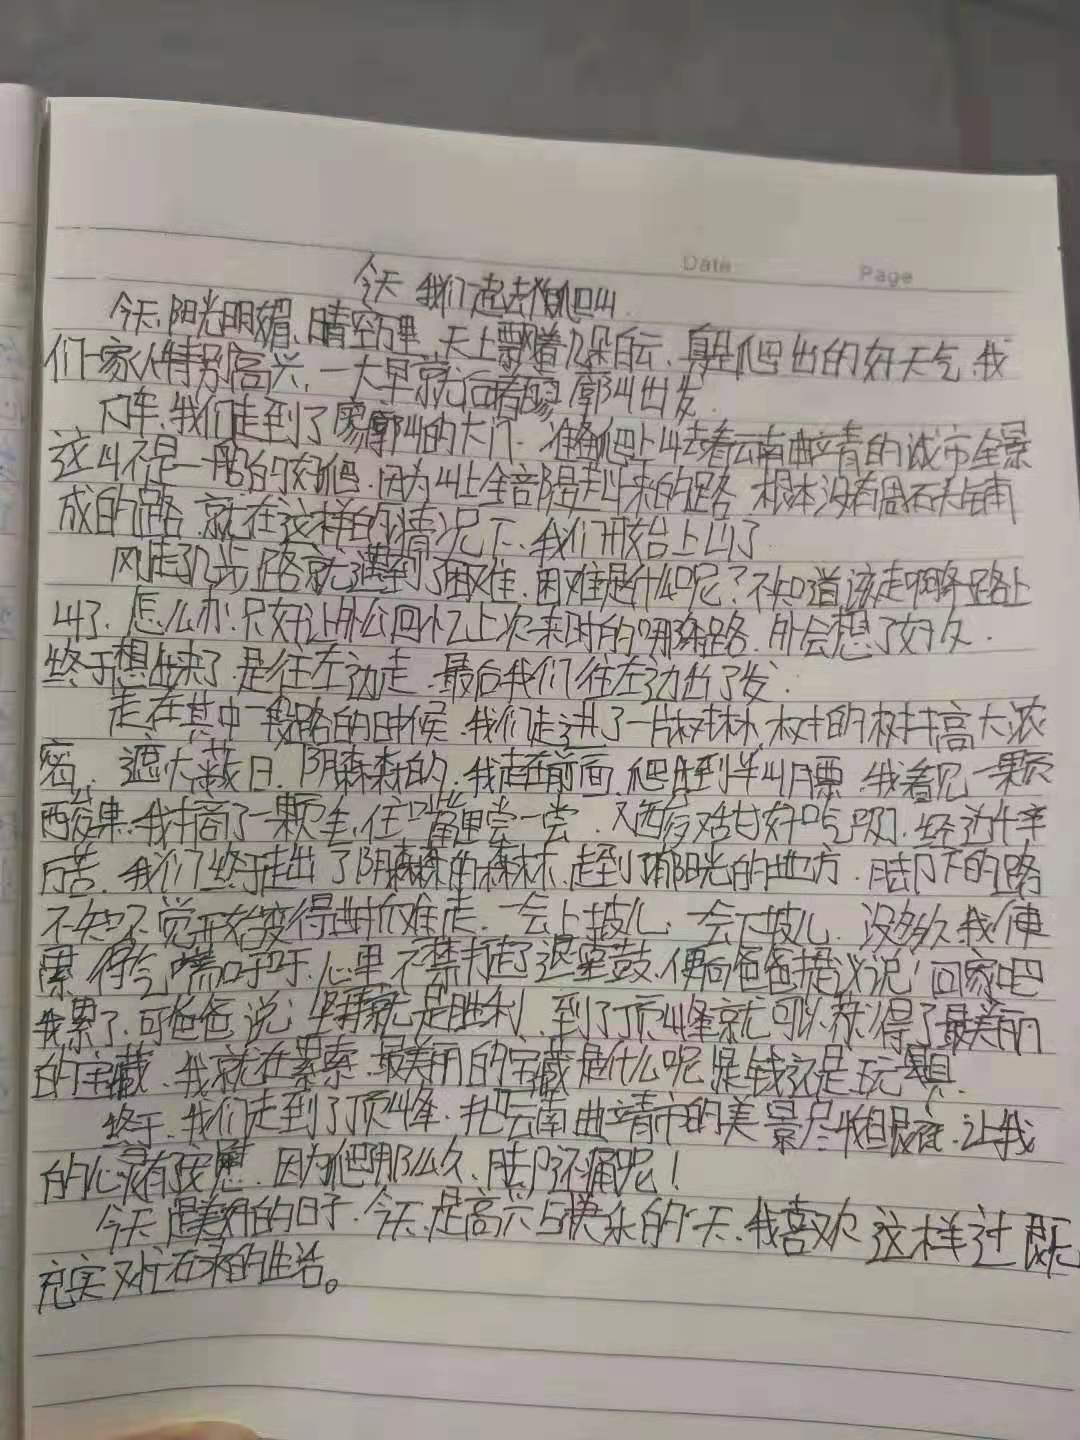 Date Page
今天 我们一起去爬山
今天,阳光明媚、晴空万里,天上飘着几朵白云,真是爬山的好天气,我
们一家人特别高兴,一大早就向着寥廓山出发.
门车,我们走到了寥廓山的大门.准备爬上山去看云南曲靖的城市全景
这山不是一般的好爬.因为山上全部是走出来的路,根本没有用石头铺
成的路,就在这样的情况下,我们开始上山了
刚走几步路就遇到了困难,困难是什么呢?不知道该走哪条路上
山了.怎么办.只好让外公回忆上次来时的哪条路.外公想了好久.
终于想出来了.是往左边走.最后我们往左边出了发.
走在其中一段路的时候,我们走进了一片树林,树林的树高大浓
密,遮天蔽日.阴森森的,我走在前面,爬到半山腰,我看见一颗
酸果,我摘了一颗往嘴里尝一尝.又酸又甜好吃极了.经过千辛
万苦.我们终于走出了阴森森的森林,走到了有阳光的地方.脚下的路
不知不觉开始变得越来越难走.一会上坡儿,一会下坡儿.没多久我便
累得气喘吁吁,心里不禁打起了退堂鼓,便向爸爸提议说:回家吧
我累了.可爸爸说:坚持就是胜利,到了顶峰就可以获得了最美丽
的宝藏.我就在思索.最美丽的宝藏是什么呢,是钱还是玩具.
终于,我们走到了顶峰.把云南曲靖市的美景尽收眼底.让我
的心灵有了安慰.因为爬那么久,脚还痛呢!
今天是美好的日子.今天,是高兴与快乐的一天,我喜欢这样过既
充实又忙碌的生活。